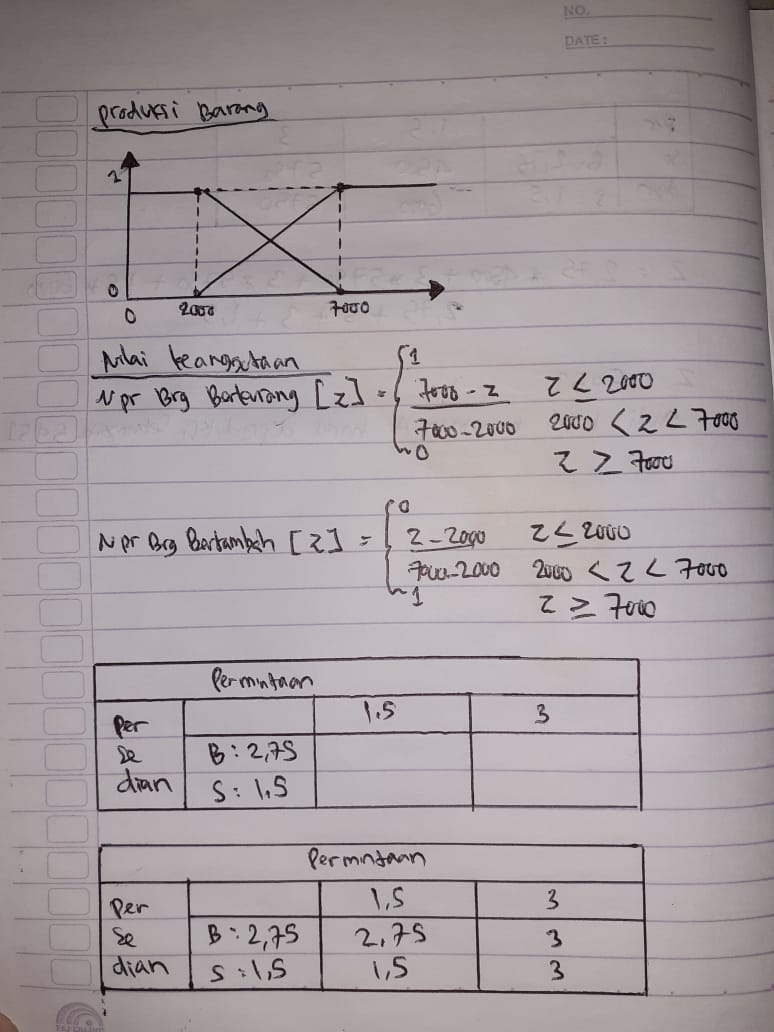 NO.
DATE:
Produksi Barang
1
0
0 2000 7000
Nilai keanggotaan
N pr Brg Berkurang [z] = { 1
7000 - z z ≤ 2000
7000 - 2000 2000 < z < 7000
0 z ≥ 7000
N pr Brg Bertambah [z] = { 0
z - 2000 z ≤ 2000
7000 - 2000 2000 < z < 7000
1 z ≥ 7000
Permintaan
Per 1,5 3
se B : 2,75
dian S : 1,5
Permintaan
Per 1,5 3
se B : 2,75 2,75 3
dian S : 1,5 1,5 3